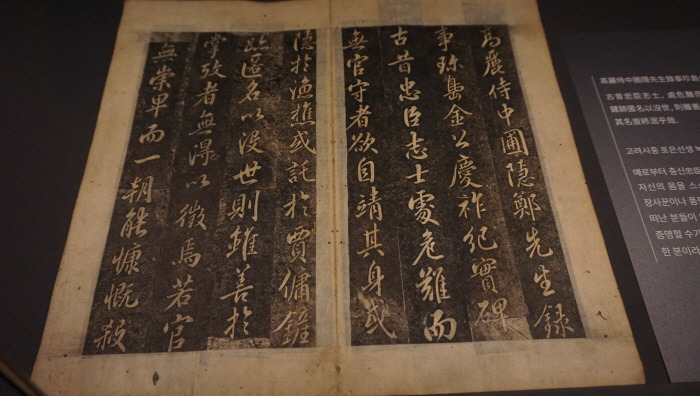 高麗侍中圃隱鄭先生錄
事珎島金公慶祚紀實碑
古昔忠臣志士處危難而
無官守者欲自靖其身或
隱於漁樵或託於賈傭鏟
跡匿名以沒世則雖善於
掌攷者無淂以徵焉若官
無崇卑而一朝能慷慨殺
高麗侍中圃隱先生錄事珍島
古昔忠臣志士, 處危難而
鏟跡匿名以沒世, 則雖善
其名豈終泯乎哉.
고려시중 포은선생 녹
예로부터
자신의 몸을
장사꾼이나
떠난 분들이
증명할 수가
한 분이라